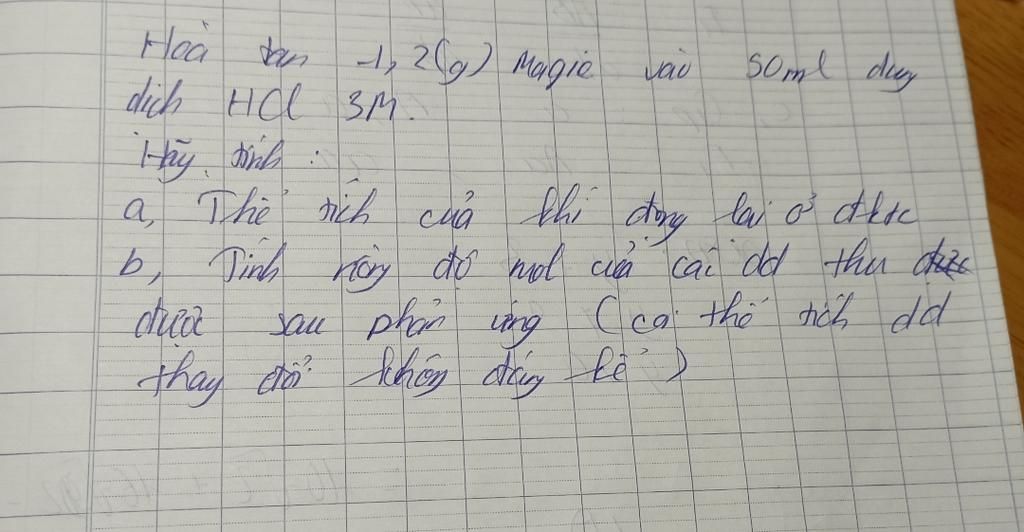 Hoà tan 1,2(g) Magie vào 50ml dung
dịch HCl 3M.
Hãy tính :
a, Thể tích của khí đọng lại ở đktc
b, Tính nồng độ mol của các dd thu
được sau phản ứng (coi thể tích dd
thay đổi không đáng kể)